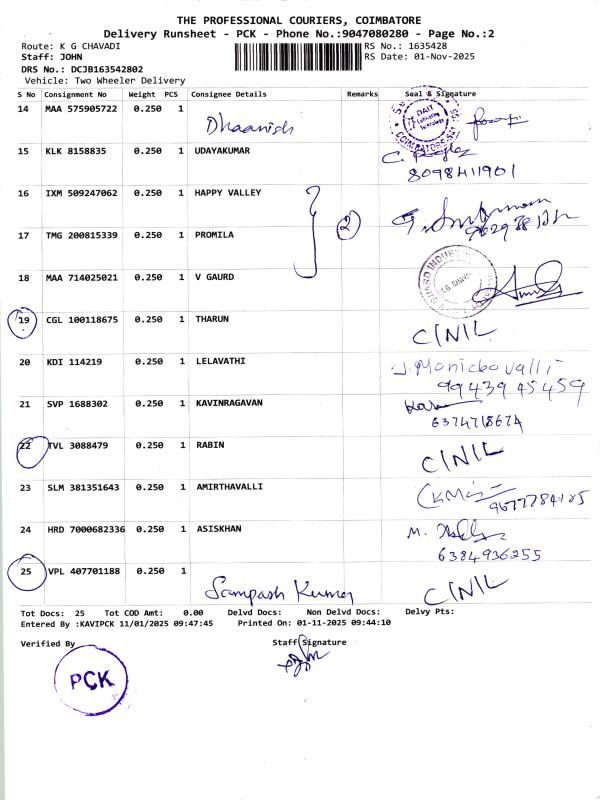 THE PROFESSIONAL COURIERS, COIMBATORE
Delivery Runsheet - PCK - Phone No.:9047080280 - Page No.:2
Route: K G CHAVADI RS No.: 1635428
Staff: JOHN RS Date: 01-Nov-2025
DRS No.: DCJB163542802
Vehicle: Two Wheeler Delivery
S No Consignment No Weight PCS Consignee Details Remarks Seal & Signature
14 MAA 575905722 0.250 1 Dhaanish
15 KLK 8158835 0.250 1 UDAYAKUMAR
8098411901
16 IXM 509247062 0.250 1 HAPPY VALLEY
17 TMG 200815339 0.250 1 PROMILA 2
18 MAA 714025021 0.250 1 V GAURD
19 CGL 100118675 0.250 1 THARUN C/NIL
20 KDI 114219 0.250 1 LELAVATHI J. Manickavalli
99439 45459
21 SVP 1688302 0.250 1 KAVINRAGAVAN
6374718674
22 TVL 3088479 0.250 1 RABIN C/NIL
23 SLM 381351643 0.250 1 AMIRTHAVALLI
9677784125
24 HRD 7000682336 0.250 1 ASISKHAN M.
6384936255
25 VPL 407701188 0.250 1 Sampash Kumar C/NIL
Tot Docs: 25 Tot COD Amt: 0.00 Delvd Docs: Non Delvd Docs: Delvy Pts:
Entered By :KAVIPCK 11/01/2025 09:47:45 Printed On: 01-11-2025 09:44:10
Verified By Staff Signature
PCK